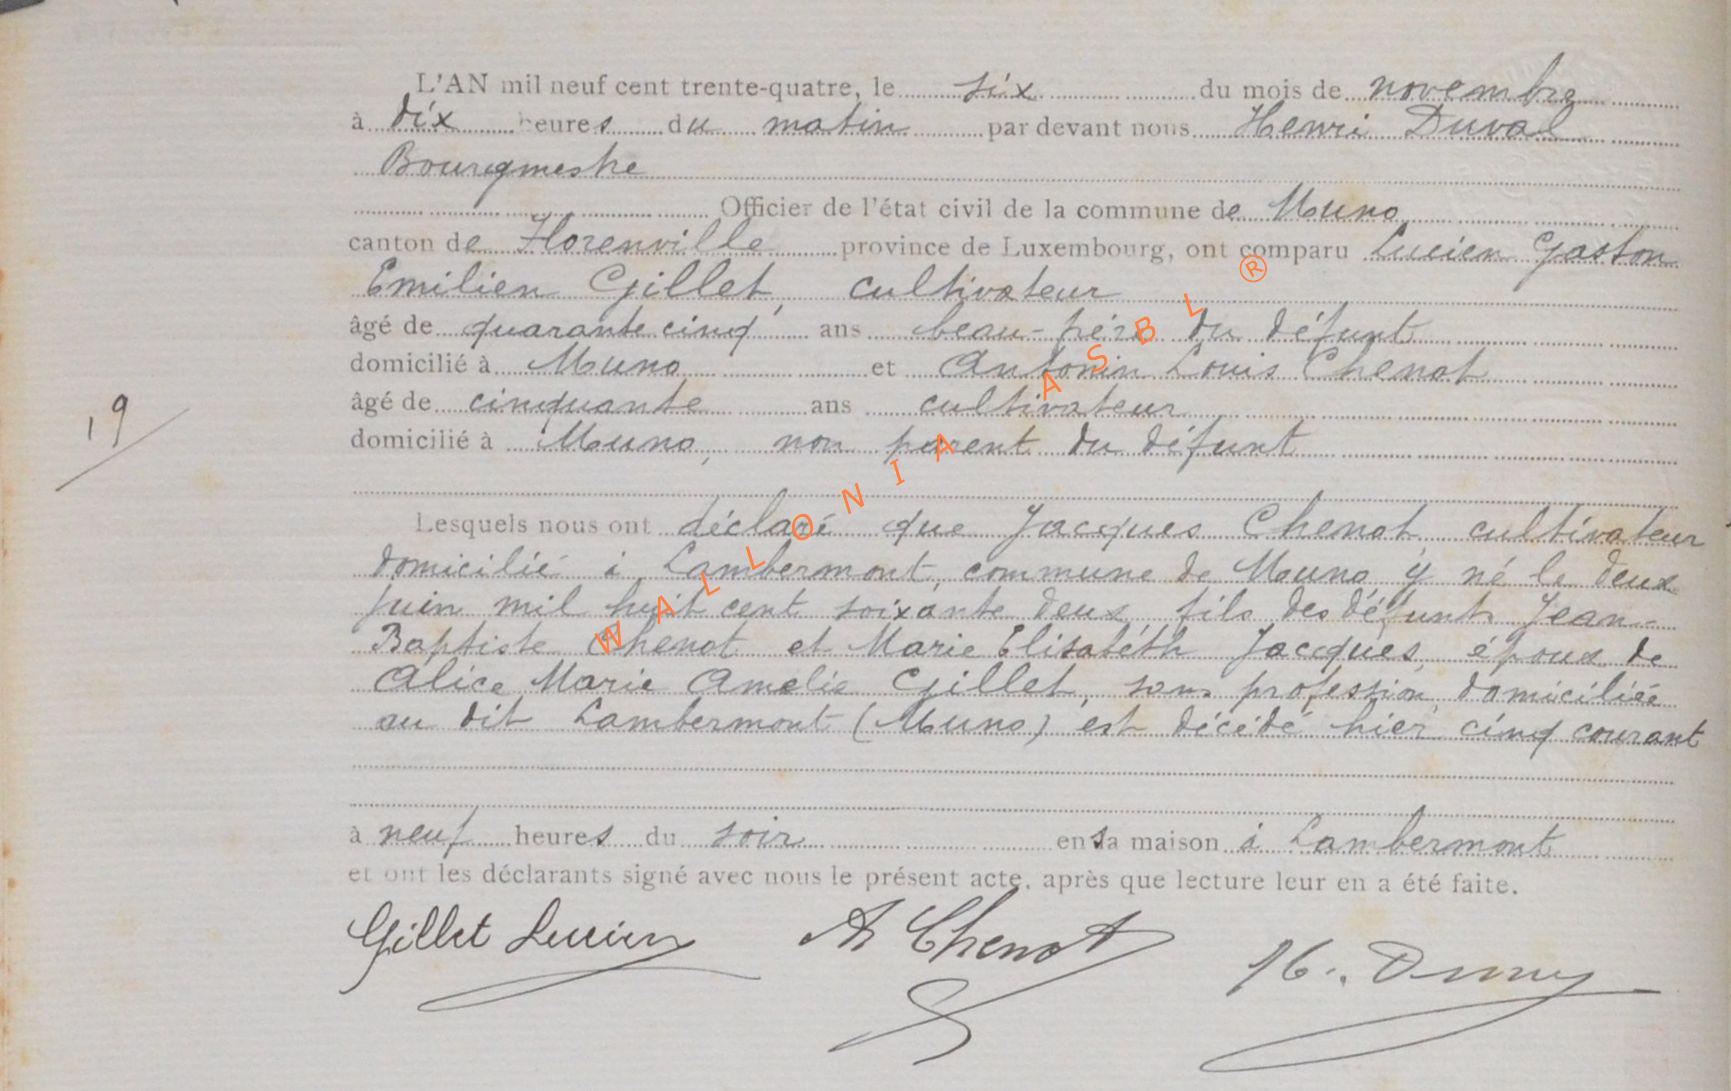 L'AN mil neuf cent trente-quatre, le six du mois de novembre
à dix heures du matin par devant nous Henri Duval
Bourgmestre
Officier de l'état civil de la commune de Muno
canton de Florenville province de Luxembourg, ont comparu Lucien Gaston
Emilien Gillet, cultivateur
âgé de quarante cinq ans beau-père du défunt
domicilié à Muno et Antonin Louis Chenot
âgé de cinquante ans cultivateur
domicilié à Muno, non parent du défunt
19
Lesquels nous ont déclaré que Jacques Chenot, cultivateur
domicilié à Lambermont, commune de Muno y né le deux
juin mil huit cent soixante deux, fils des défunts Jean-
Baptiste Chenot et Marie Elisabéth Jacques, époux de
Alice Marie Amelie Gillet, sans profession, domiciliée
au dit Lambermont (Muno) est décédé hier cinq courant
à neuf heures du soir en sa maison à Lambermont
et ont les déclarants signé avec nous le présent acte, après que lecture leur en a été faite.
Gillet Lucien A Chenot H. Duval
WALLONIA ASBL ®